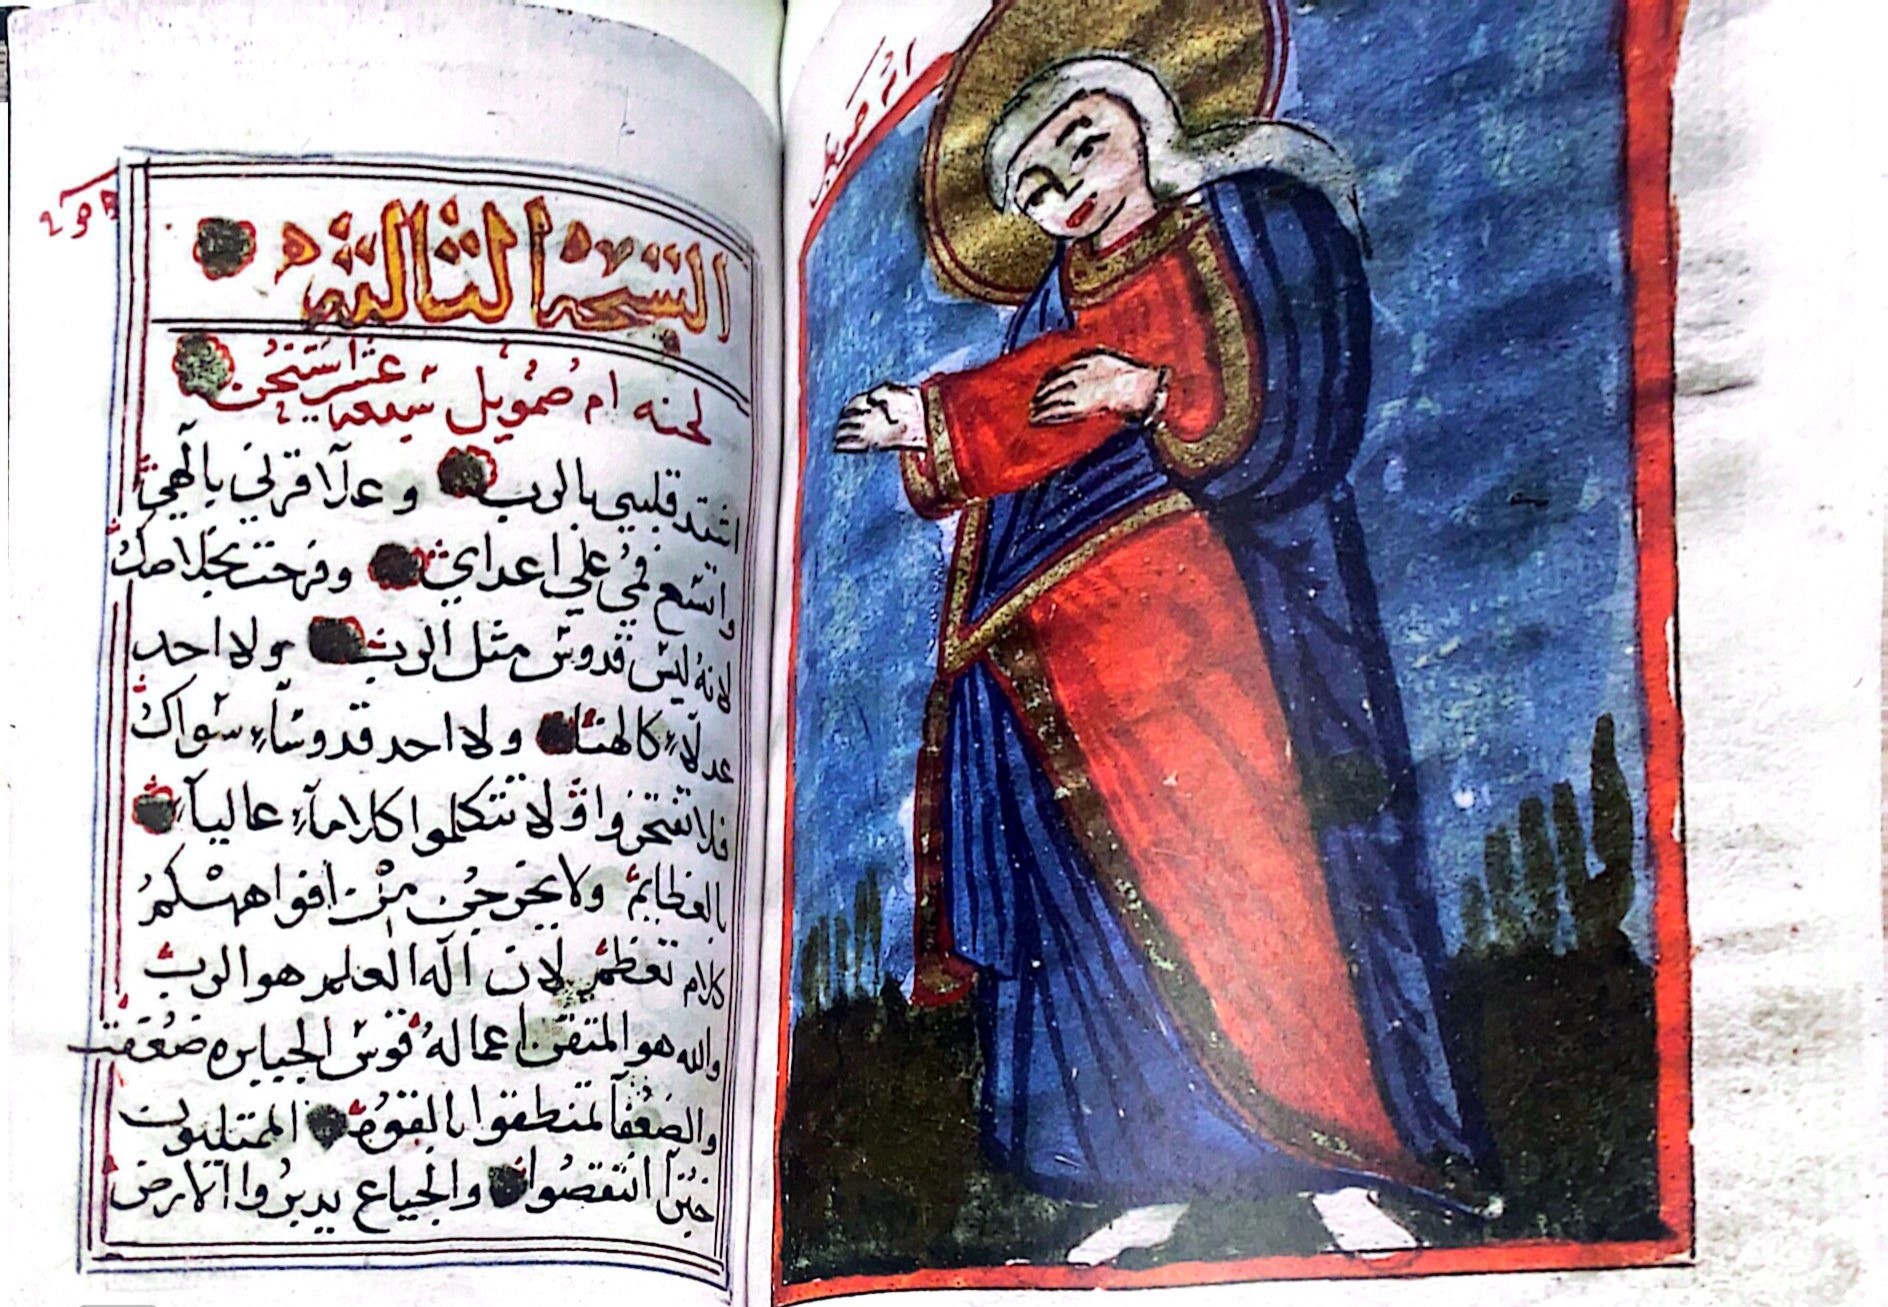 ام صمويل
التسبحة الثالثة
لحنه ام صمويل سبعة عشر استيخن
اشتد قلبي بالرب وعلا قرني بالهي
واتسع فمي علي اعداي وفرحت بخلاصك
لانه ليس قدوس مثل الرب ولا احد
عدلاً كالهنا ولا احد قدوساً سواك
فلا تفتخروا ولا تتكلموا كلاماً عالياً
بالعظايم ولا يخرج من افواهكم
كلام تعظم لان اله العلم هو الرب
والله هو المتقن اعماله قوس الجبابره ضعفت
والضعفا تمنطقوا بالقوه الممتليون
خبزاً انتقصوا والجياع يدبروا الارض